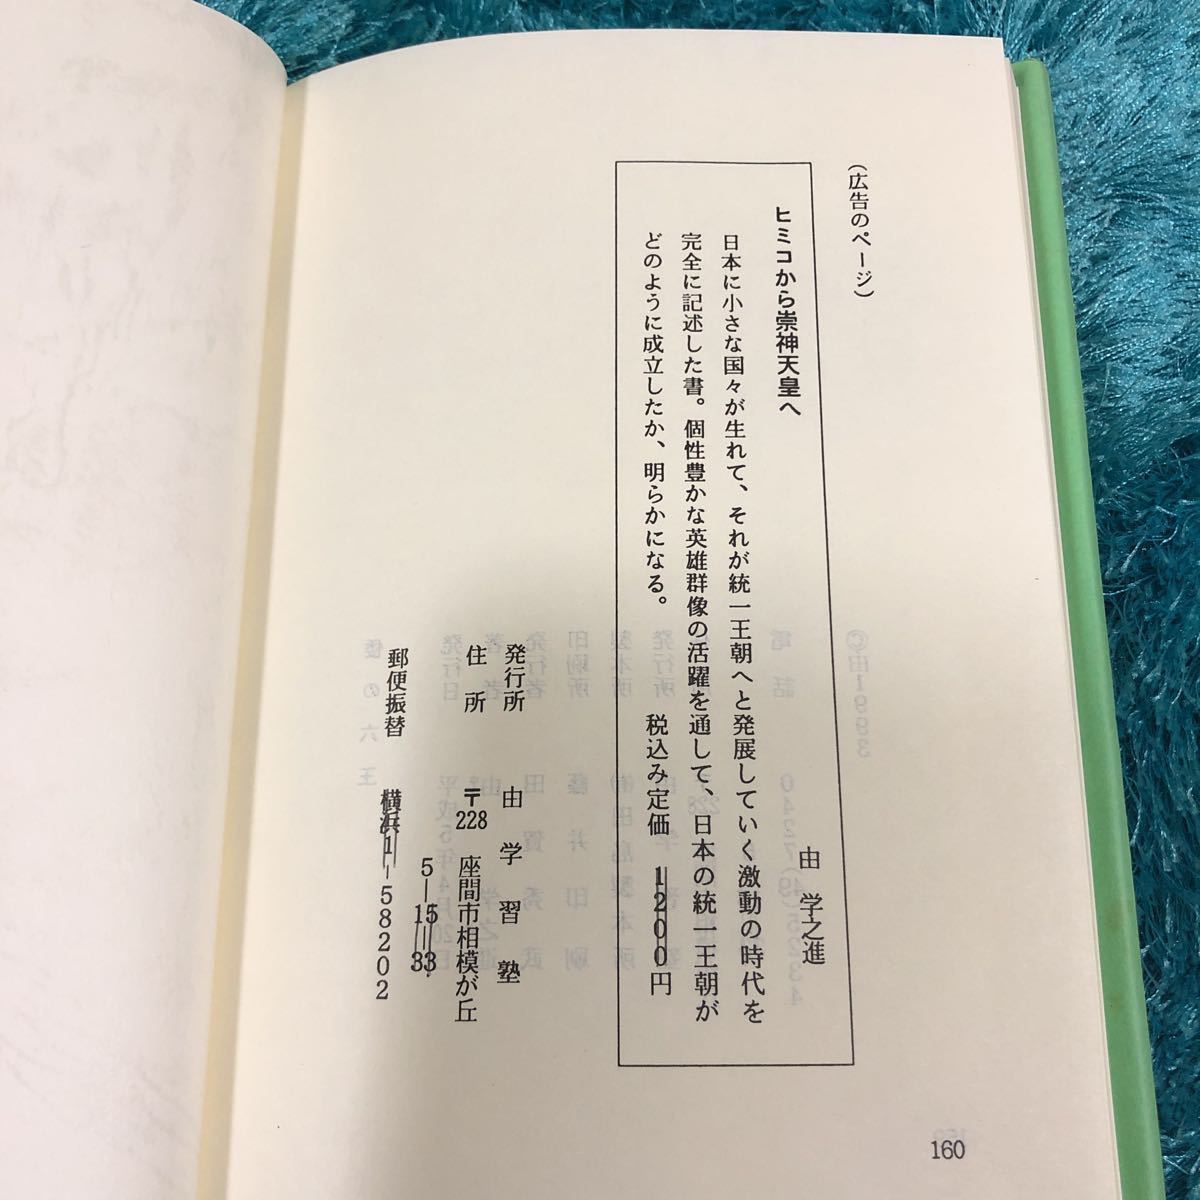 （広告のページ）
ヒミコから崇神天皇へ
由 学之進
日本に小さな国々が生れて、それが統一王朝へと発展していく激動の時代を
完全に記述した書。個性豊かな英雄群像の活躍を通して、日本の統一王朝が
どのように成立したか、明らかになる。 税込み定価 1200円
発行所 由学習塾
住所 〒228 座間市相模が丘
5－15－33
郵便振替 横浜1－58202
160